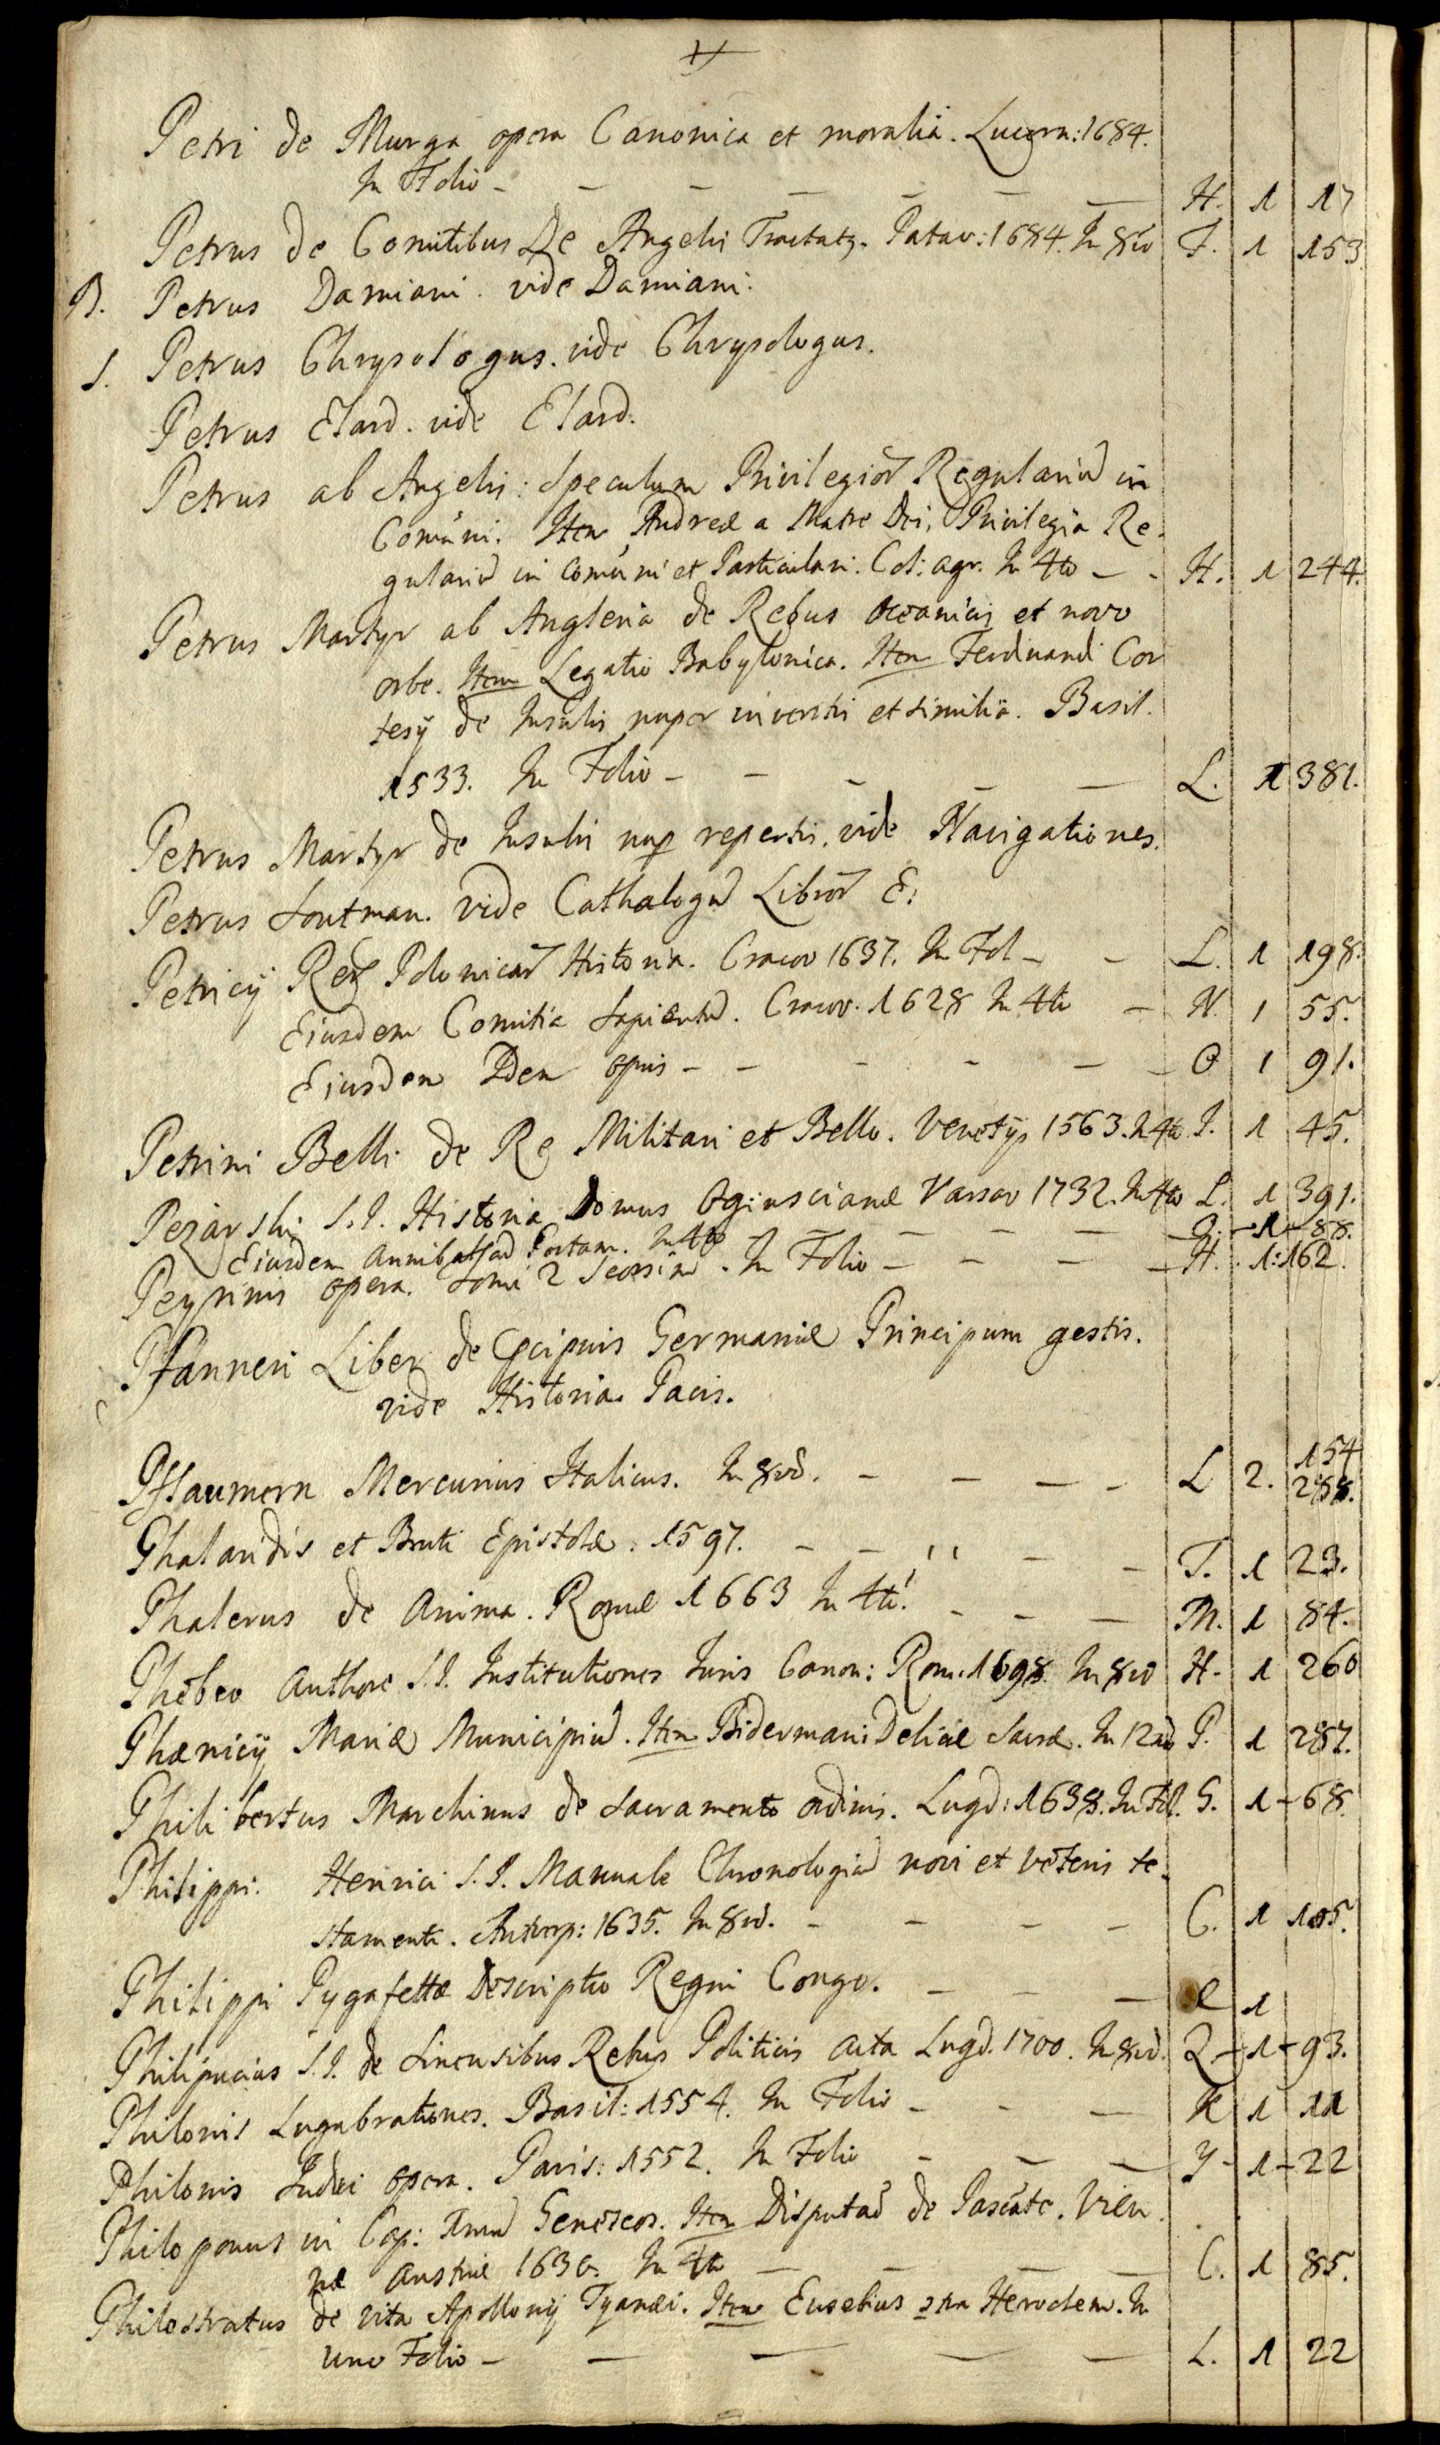 Petri de Murga opera Canonica et moralia. Lucern: 1684.
In Folio - - - - - - - H. 1 17
Petrus de Comitibus De Angelis Tractatq. Patav: 1684. In 8vo F. 1 153.
B. Petrus Damiani. vide Damiani.
S. Petrus Chrysologus. vide Chrysologus.
Petrus Elard. vide Elard.
Petrus ab Angelis: Speculum Privilegior Regulariu in
Comuni. Item Andreæ a Matre Dei, Privilegia Re-
gulariu in Comuni et Particulari. Col: agr. In 4to - - H. 1 244.
Petrus Martyr ab Angleria de Rebus Oceanicis et novo
orbe. Item Legatio Babylonica. Item Ferdinandi Cor
tesÿ de Insulis nuper inventis et similia. Basil.
1533. In Folio - - - - - L. 1 381.
Petrus Martyr de Insulis nup repertis. vide Navigationes.
Petrus Soutman. vide Cathalogu Libror E:
Petricÿ Rer Polonicar Historia. Cracov 1637. In Fol - - L. 1 198.
Eiusdem Comitia Sapientu. Cracov. 1628 In 4to - N. 1 55.
Eiusdem Idem opus - - - - - - O 1 91.
Petrini Belli de Re Militari et Bello. Venetÿs 1563. In 4to I. 1 45.
Pezarski S.I. Historia Domus Oginscianæ Varsav 1732. In 4to L. 1 391.
Eiusdem Annibal ad Portam. In 4to - - - - Q. - 1 - 88.
Peyrinis opera. Tomi 2 Seorsim. In Folio - - - - H. 1: 162.
Pfanneri Liber de Præcipuis Germaniæ Principum gestis.
vide Historia Pacis.
Pflaumern Mercurius Italicus. In 8vo. - - - - L 2. 154
288.
Phalaridis et Bruti Epistolæ. 1597. - - - - T. 1 23.
Phalerus de Anima. Romæ 1663 In 4to. - - - M. 1 84.
Phebeo Authore S.I. Institutiones Iuris Canon: Rom. 1698. In 8vo H- 1 260
Phænicÿ Mariæ Municipiu. Item Bidermani Deliciæ Sacræ. In 12mo P. 1 287.
Philibertus Marchinus de Sacramento ordinis. Lugd: 1638. In Fol. G. 1 - 68.
Philippi Henrici S.I. Manuale Chronologiæ novi et veteris te-
stamenti. Antverp: 1635. In 8vo. - - - - C. 1 105.
Philippi Pygafettæ Descriptio Regni Congo. - - - e 1
Philipucius S.I. de Sinensibus Rebus Politicis acta Lugd. 1700. In 8vo. Q - 1 - 93.
Philonis Lugubrationes. Basil: 1554. In Folio - - - K 1 11
Philonis Iudæi opera. Paris: 1552. In Folio - - - Y - 1 - 22
Philoponus in Cap: Imu Geneseos. Item Disputao de Pascate. Vien-
næ Austriæ 1630. In 4to - - - - C. 1 85.
Philostratus de vita Apollonÿ Tyanæi. Item Eusebius ctra Heroclem. In
uno Folio - - - - - L. 1 22